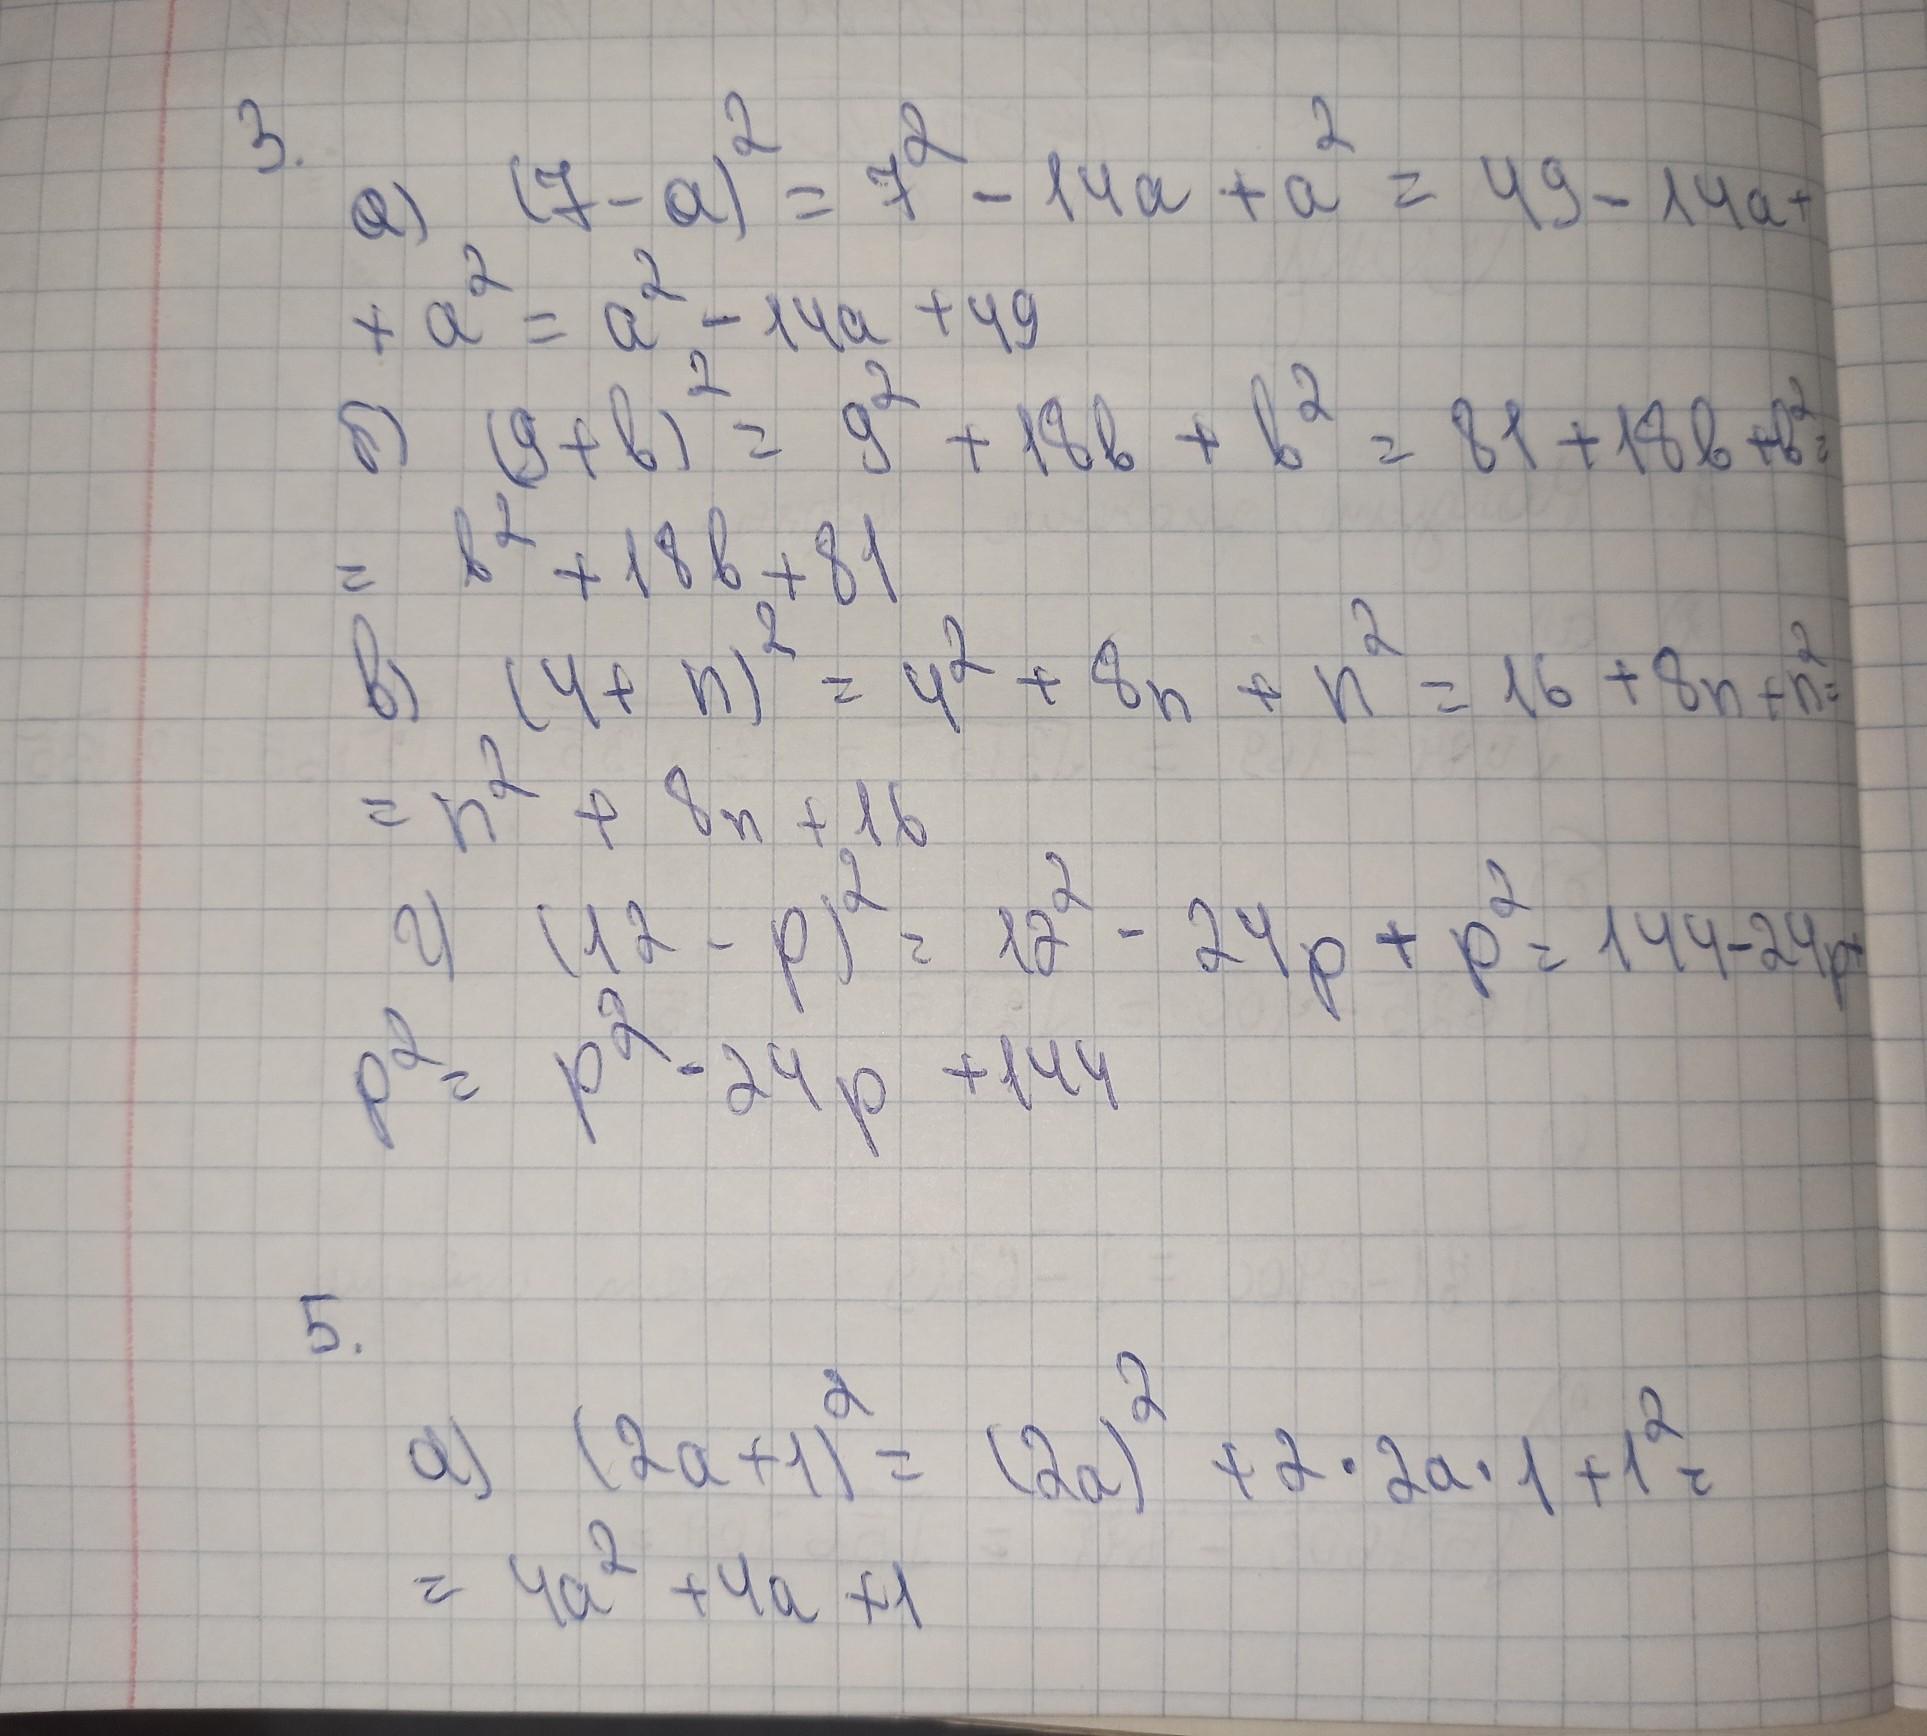 3.
а) (7 - a)² = 7² - 14a + a² = 49 - 14a +
+ a² = a² - 14a + 49
б) (9 + b)² = 9² + 18b + b² = 81 + 18b + b² =
= b² + 18b + 81
в) (4 + n)² = 4² + 8n + n² = 16 + 8n + n² =
= n² + 8n + 16
г) (12 - p)² = 12² - 24p + p² = 144 - 24p +
p² = p² - 24p + 144
5.
а) (2a + 1)² = (2a)² + 2 · 2a · 1 + 1² =
= 4a² + 4a + 1